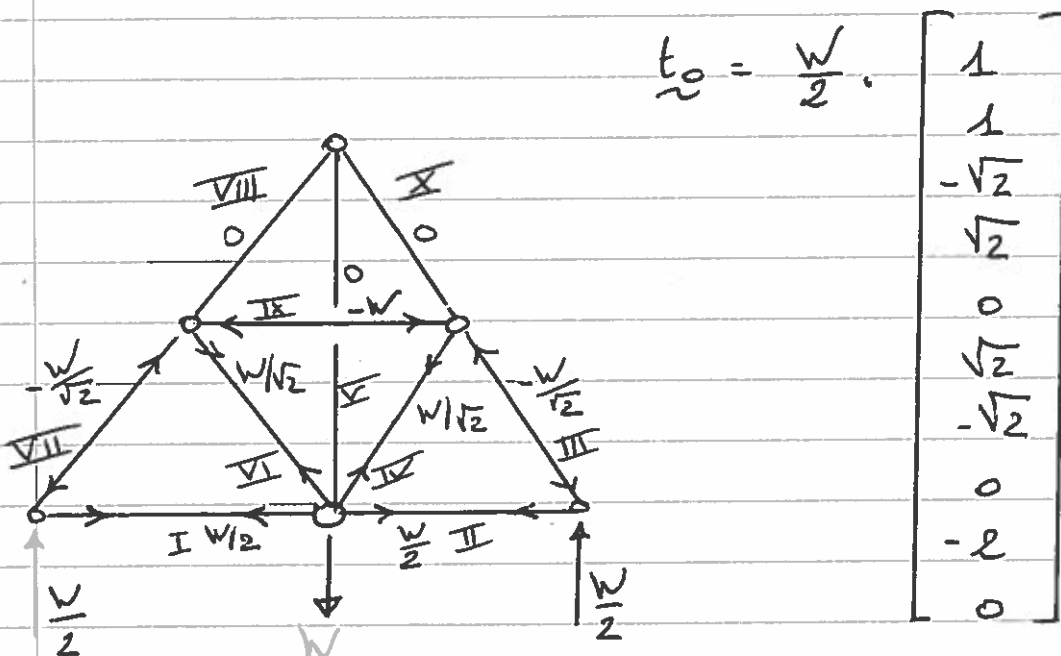 t₀ = W/2 · [1
1
-√2
√2
0
√2
-√2
0
-2
0]
VIII
X
0
0
0
IX
-W
-W/√2
W/√2
V
W/√2
-W/√2
VII
VI
IV
III
I W/2
W/2 II
W/2
W
W/2